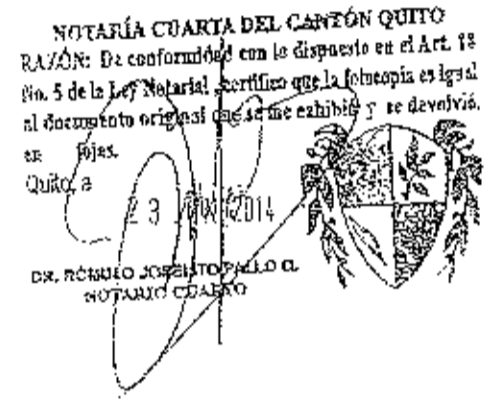 NOTARÍA CUARTA DEL CANTÓN QUITO
RAZÓN: De conformidad con lo dispuesto en el Art. 18
No. 5 de la Ley Notarial, certifico que la fotocopia es igual
al documento original que se me exhibió y se devolvió.
en fojas.
Quito, a
23 2014
DR. RÓMULO JOSELITO PALLO Q.
NOTARIO CUARTO